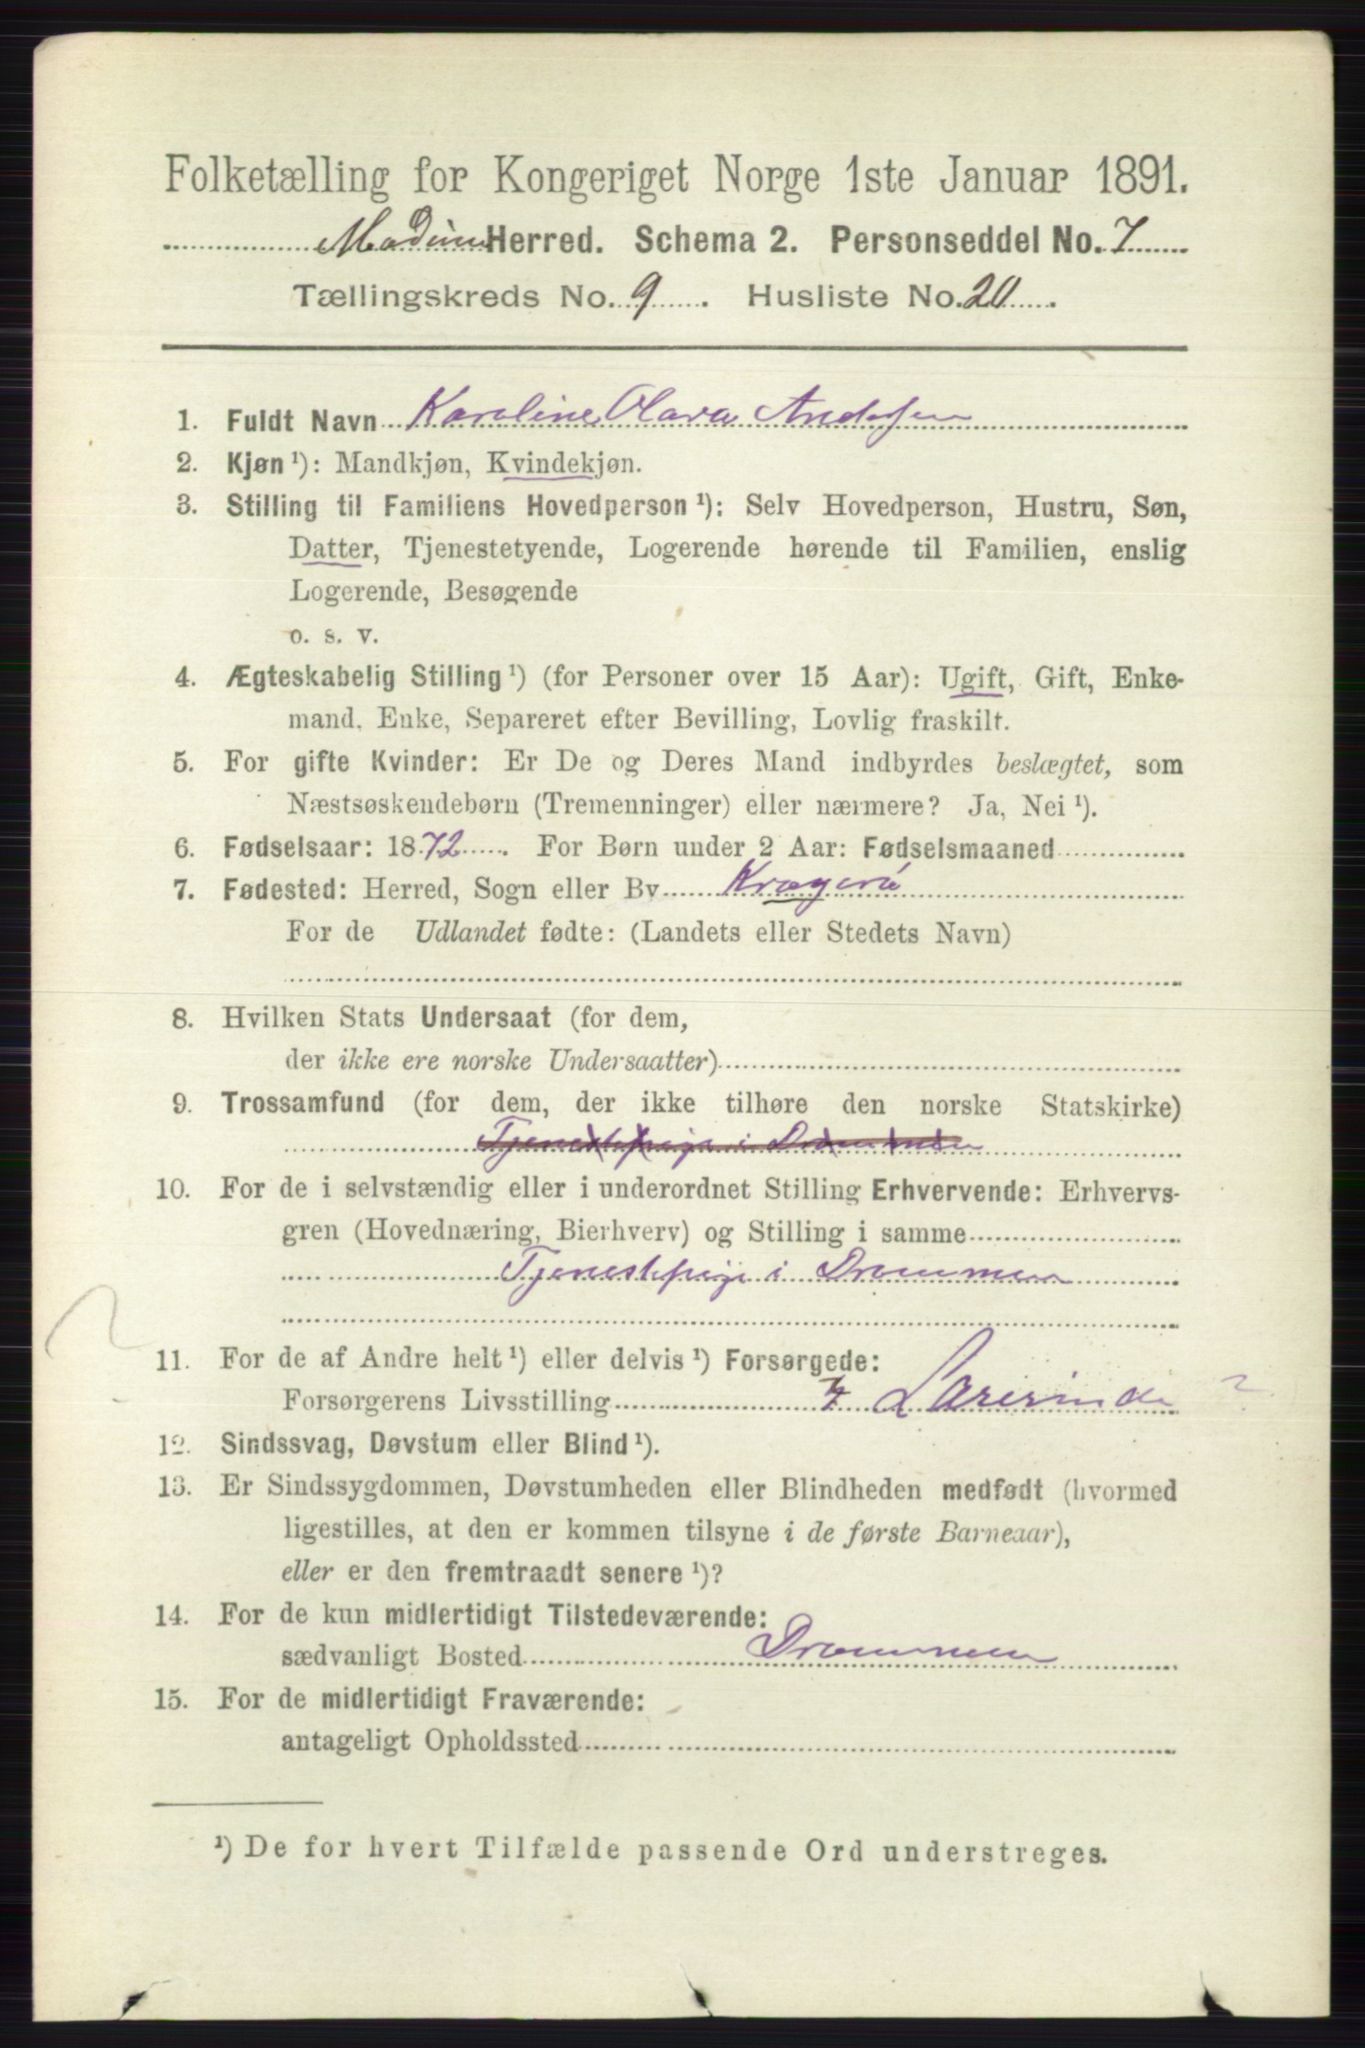 Folketælling for Kongeriget Norge 1ste Januar 1891.
Modum Herred. Schema 2. Personseddel No. 7
Tællingskreds No. 9. Husliste No. 20.
1. Fuldt Navn Karoline Olava Andersen
2. Kjøn ¹): Mandkjøn, Kvindekjøn.
3. Stilling til Familiens Hovedperson ¹): Selv Hovedperson, Hustru, Søn,
Datter, Tjenestetyende, Logerende hørende til Familien, enslig
Logerende, Besøgende
o. s. v.
4. Ægteskabelig Stilling ¹) (for Personer over 15 Aar): Ugift, Gift, Enke-
mand, Enke, Separeret efter Bevilling, Lovlig fraskilt.
5. For gifte Kvinder: Er De og Deres Mand indbyrdes beslægtet, som
Næstsøskendebørn (Tremenninger) eller nærmere? Ja, Nei ¹).
6. Fødselsaar: 1872. For Børn under 2 Aar: Fødselsmaaned
7. Fødested: Herred, Sogn eller By Kragerø
For de Udlandet fødte: (Landets eller Stedets Navn)
8. Hvilken Stats Undersaat (for dem,
der ikke ere norske Undersaatter)
9. Trossamfund (for dem, der ikke tilhøre den norske Statskirke)
Tjenestepige i Drammen
10. For de i selvstændig eller i underordnet Stilling Erhvervende: Erhvervs-
gren (Hovednæring, Bierhverv) og Stilling i samme
Tjenestepige i Drammen
11. For de af Andre helt ¹) eller delvis ¹) Forsørgede:
Forsørgerens Livsstilling Lærerinde ?
12. Sindssvag, Døvstum eller Blind ¹).
13. Er Sindssygdommen, Døvstumheden eller Blindheden medfødt (hvormed
ligestilles, at den er kommen tilsyne i de første Barneaar),
eller er den fremtraadt senere ¹)?
14. For de kun midlertidigt Tilstedeværende:
sædvanligt Bosted Drammen
15. For de midlertidigt Fraværende:
antageligt Opholdssted
¹) De for hvert Tilfælde passende Ord understreges.